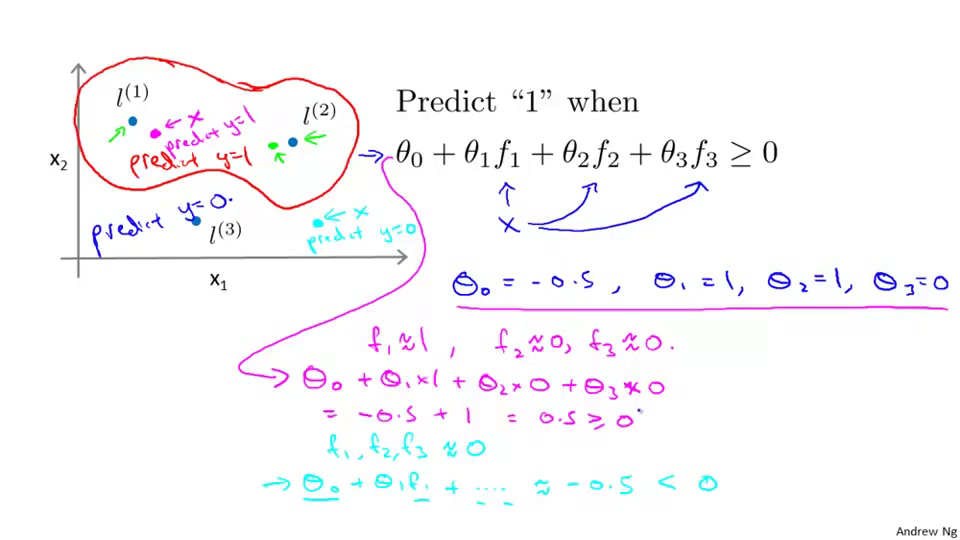 l^{(1)}
l^{(2)}
← x
predict y=1
predict y=1
x₂
predict y=0.
l^{(3)}
← x
predict y=0
x₁
Predict “1” when
→ θ₀ + θ₁f₁ + θ₂f₂ + θ₃f₃ ≥ 0
x
θ₀ = -0.5, θ₁=1, θ₂=1, θ₃=0
f₁≈1, f₂≈0, f₃≈0.
→ θ₀ + θ₁×1 + θ₂×0 + θ₃×0
= -0.5 + 1 = 0.5 ≥ 0
f₁, f₂, f₃ ≈ 0
→ θ₀ + θ₁f₁ + .... ≈ -0.5 < 0
Andrew Ng